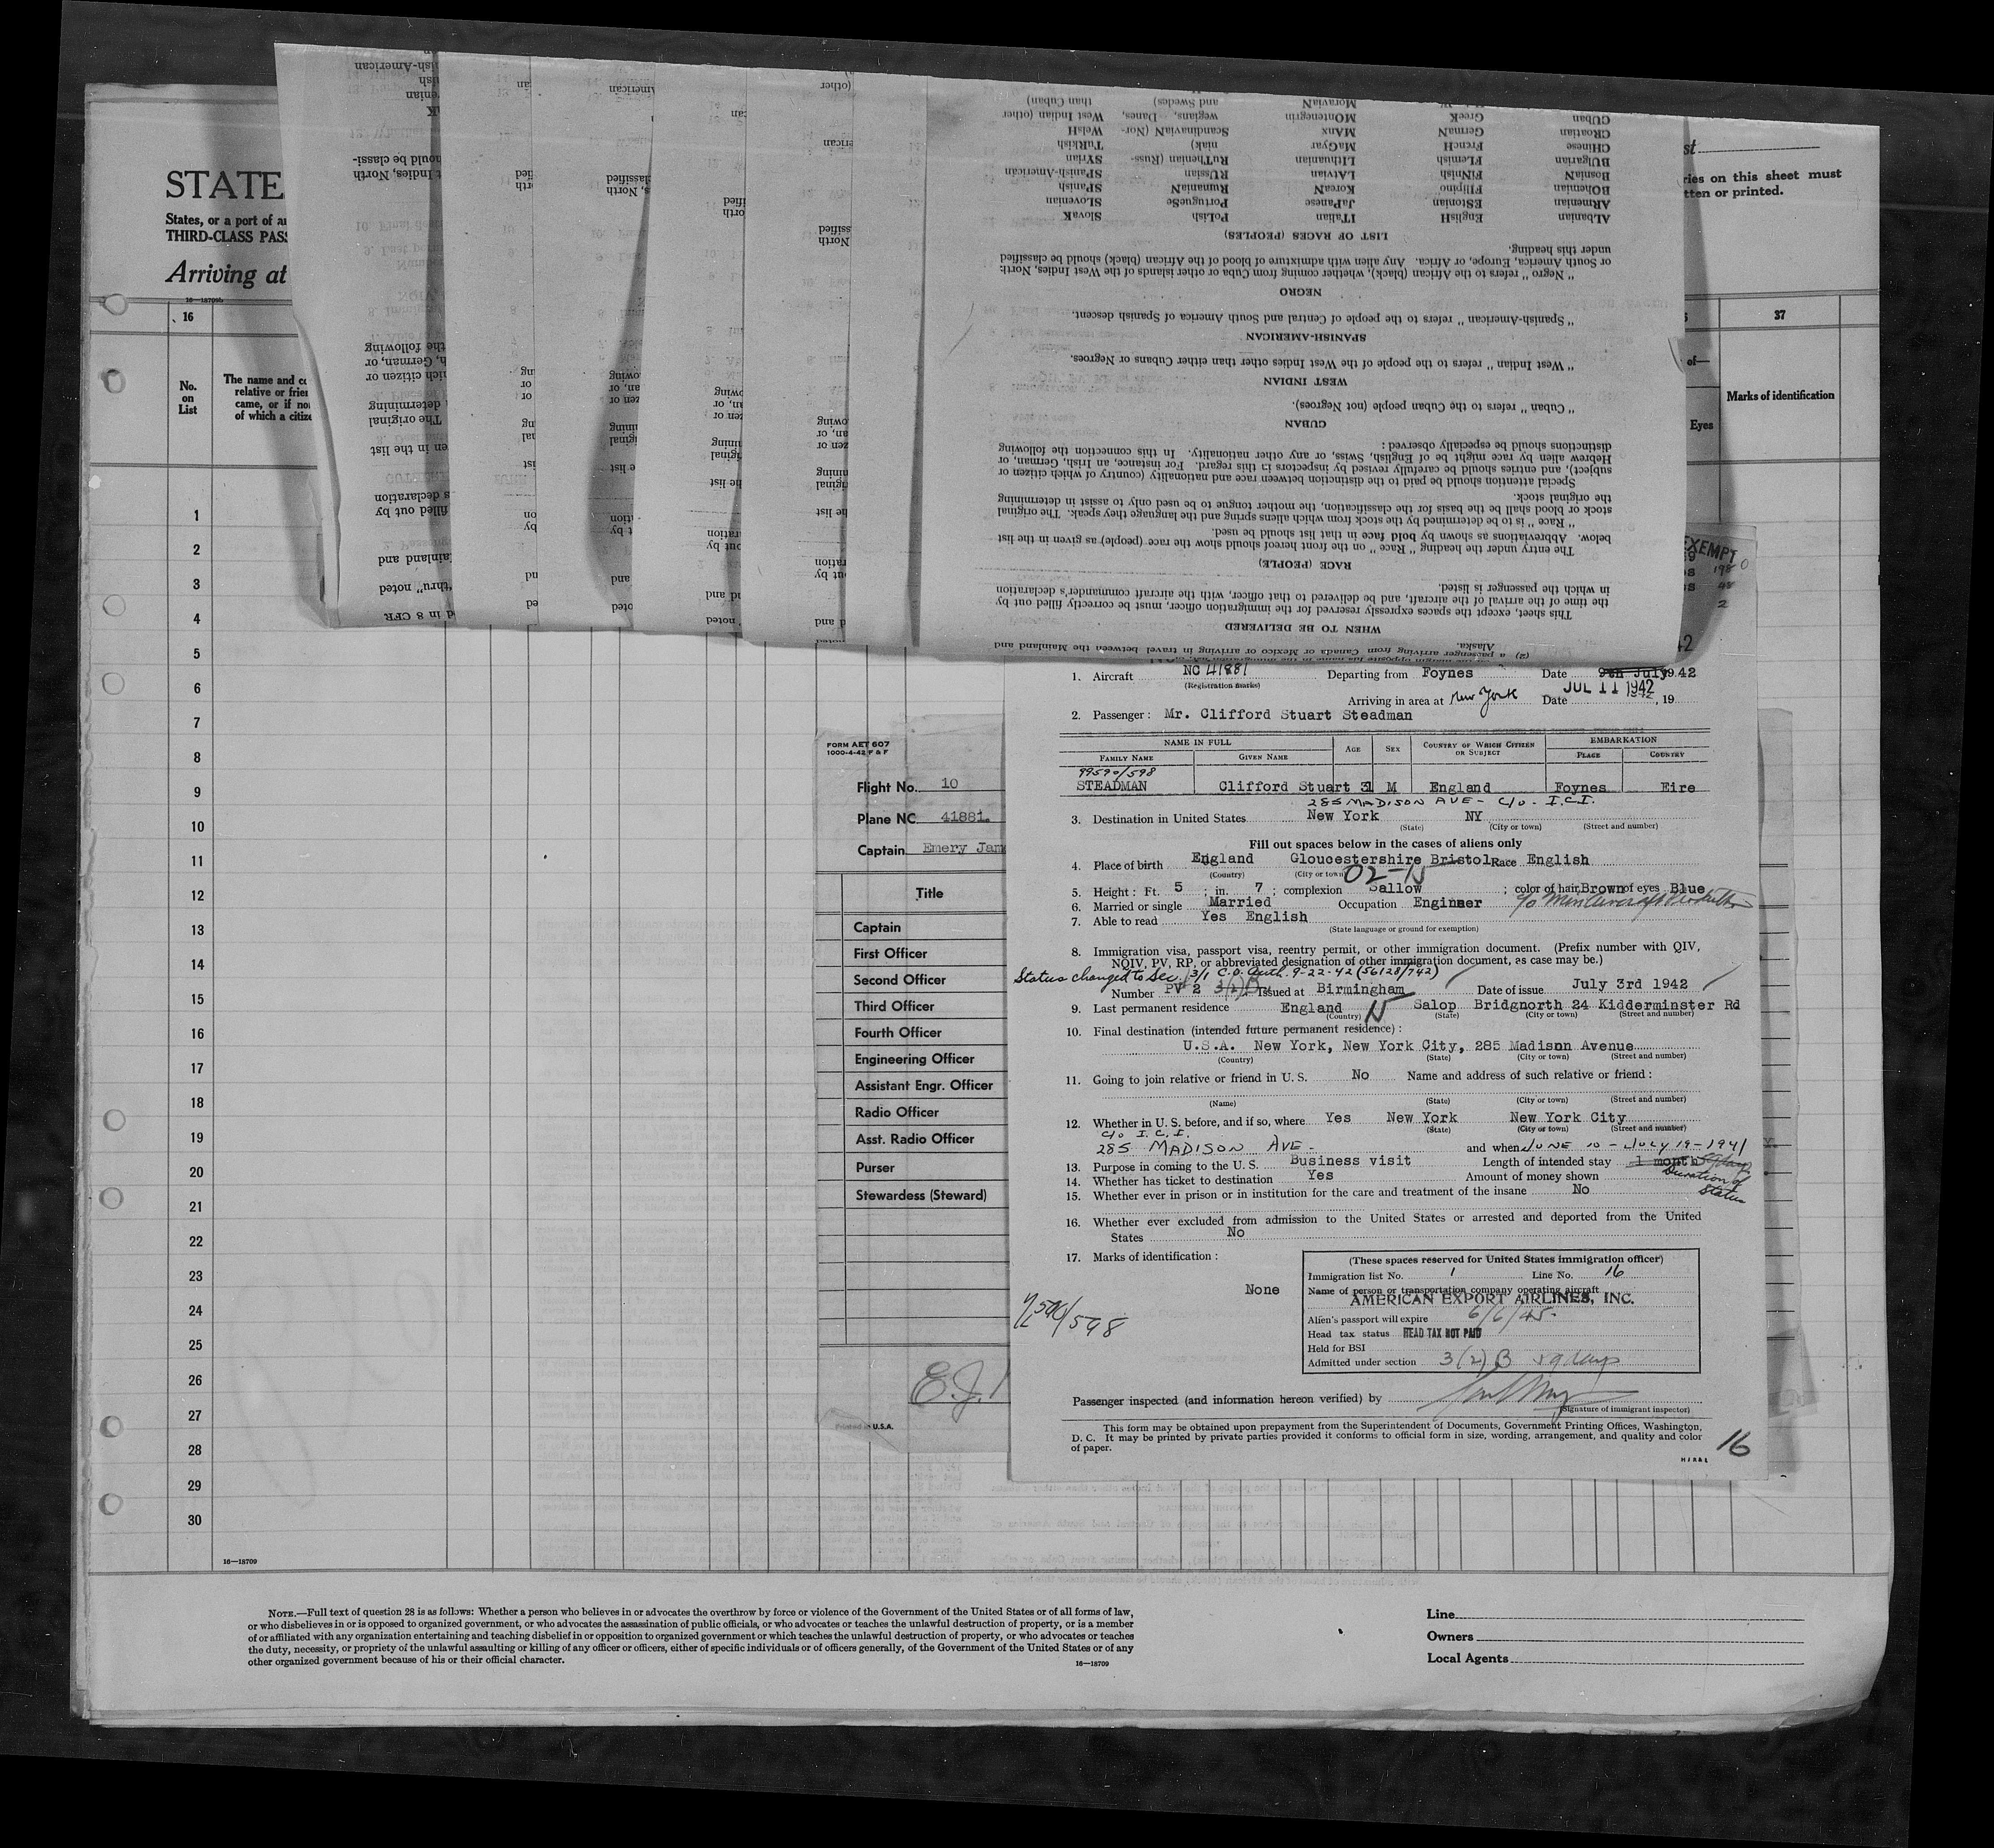 STATE
States, or a port of
THIRD-CLASS
Arriving at
16—18709
16
No.
on
List
The name and
relative or
came, or if
of which a
1
2
3
4
5
6
7
8
9
10
11
12
13
14
15
16
17
18
19
20
21
22
23
24
25
26
27
28
29
30
16—18709
on this sheet must
or printed.
37
of—
Marks of identification
Eyes
EXEMPT
(2) a passenger arriving from Canada or Mexico or arriving in travel between the Mainland and
Alaska.
WHEN TO BE DELIVERED
This sheet, except the spaces expressly reserved for the immigration officer, must be correctly filled out by
the time of the arrival of the aircraft, and be delivered to that officer, with the aircraft commander's declaration
in which the passenger is listed.
RACE (PEOPLE)
The entry under the heading "Race" on the front hereof should show the race (people) as given in the list
below. Abbreviations as shown by bold face in that list should be used.
"Race" is to be determined by the stock from which aliens spring and the language they speak. The original
stock or blood shall be the basis for the classification, the mother tongue to be used only to assist in determining
the original stock.
Special attention should be paid to the distinction between race and nationality (country of which citizen or
subject), and entries should be carefully revised by inspectors in this regard. For instance, an Irish, German, or
Hebrew alien by race might be of English, Swiss, or any other nationality. In this connection the following
distinctions should be especially observed:
CUBAN
"Cuban" refers to the Cuban people (not Negroes).
WEST INDIAN
"West Indian" refers to the people of the West Indies other than either Cubans or Negroes.
SPANISH-AMERICAN
"Spanish-American" refers to the people of Central and South America of Spanish descent.
NEGRO
"Negro" refers to the African (black), whether coming from Cuba or other islands of the West Indies, North
or South America, Europe, or Africa. Any alien with admixture of blood of the African (black) should be classified
under this heading.
LIST OF RACES (PEOPLES)
ALbanian EnglisH ITalian PoLish SlovaK
ARmenian EStonian JaPanese PortugueSe SLovenian
BOhemian FIlipino KoreaN RumaniaN SPanish
BosniaN FiNnisH LATvian RUssian SPanish-American
BUlgarian FLemish LIthuanian RuThenian (Russ- SYrian
CHinese FrencH MaGyar niak) TurKish
CRoatian GermaN MAnx ScandinaviaN (Nor- WelsH
CUban GreeK MOntenegrin wegians, Danes, West Indian (other
MoraviaN and Swedes) than Cuban)
FORM AET 607
1000-4-42 F & F
Flight No. 10
Plane NC 41881.
Captain Emery
Title
Captain
First Officer
Second Officer
Third Officer
Fourth Officer
Engineering Officer
Assistant Engr. Officer
Radio Officer
Asst. Radio Officer
Purser
Stewardess (Steward)
E.J.
Printed in U.S.A.
1. Aircraft NC 41881 Departing from Foynes Date 9th July 1942
(Registration marks)
Arriving in area at New York Date JUL 11 1942, 19
2. Passenger: Mr. Clifford Stuart Steadman
NAME IN FULL AGE SEX COUNTRY OF WHICH CITIZEN OR SUBJECT EMBARKATION
FAMILY NAME GIVEN NAME PLACE COUNTRY
99590/598
STEADMAN Clifford Stuart 31 M England Foynes Eire
285 MADISON AVE - C/O - I.C.I.
3. Destination in United States New York NY
(State) (City or town) (Street and number)
Fill out spaces below in the cases of aliens only
4. Place of birth England Gloucestershire Bristol Race English
(Country) (City or town)
5. Height: Ft. 5; in. 7; complexion Sallow; color of hair Brown of eyes Blue
6. Married or single Married Occupation Engineer
7. Able to read Yes English
(State language or ground for exemption)
8. Immigration visa, passport visa, reentry permit, or other immigration document. (Prefix number with QIV,
NQIV, PV, RP, or abbreviated designation of other immigration document, as case may be.)
Status changed to Sec. 3/1 C.O. Auth. 9-22-42 (56128/742)
Number PV 2 3(2)B Issued at Birmingham Date of issue July 3rd 1942
9. Last permanent residence England Salop Bridgnorth 24 Kidderminster Rd
(Country) (State) (City or town) (Street and number)
10. Final destination (intended future permanent residence):
U.S.A. New York, New York City, 285 Madison Avenue
(Country) (State) (City or town) (Street and number)
11. Going to join relative or friend in U. S. No Name and address of such relative or friend:
(Name) (State) (City or town) (Street and number)
12. Whether in U. S. before, and if so, where Yes New York New York City
(State) (City or town) (Street and number)
C/o I.C.I.
285 MADISON AVE - and when JUNE 10 - JULY 19 - 1941
13. Purpose in coming to the U. S. Business visit Length of intended stay 1 month
14. Whether has ticket to destination Yes Amount of money shown
Duration of
Status
15. Whether ever in prison or in institution for the care and treatment of the insane No
16. Whether ever excluded from admission to the United States or arrested and deported from the United
States No
17. Marks of identification:
None
(These spaces reserved for United States immigration officer)
Immigration list No. 1 Line No. 16
Name of person or transportation company operating aircraft
AMERICAN EXPORT AIRLINES, INC.
Alien's passport will expire 6/6/45
Head tax status HEAD TAX NOT PAID
Held for BSI
Admitted under section 3(2) B days
Passenger inspected (and information hereon verified) by
(Signature of immigrant inspector)
This form may be obtained upon prepayment from the Superintendent of Documents, Government Printing Offices, Washington,
D. C. It may be printed by private parties provided it conforms to official form in size, wording, arrangement, and quality and color
of paper.
16
NOTE.—Full text of question 28 is as follows: Whether a person who believes in or advocates the overthrow by force or violence of the Government of the United States or of all forms of law,
or who disbelieves in or is opposed to organized government, or who advocates the assassination of public officials, or who advocates or teaches the unlawful destruction of property, or is a member
of or affiliated with any organization entertaining and teaching disbelief in or opposition to organized government or which teaches the unlawful destruction of property, or who advocates or teaches
the duty, necessity, or propriety of the unlawful assaulting or killing of any officer or officers, either of specific individuals or of officers generally, of the Government of the United States or of any
other organized government because of his or their official character.
16—18709
Line
Owners
Local Agents